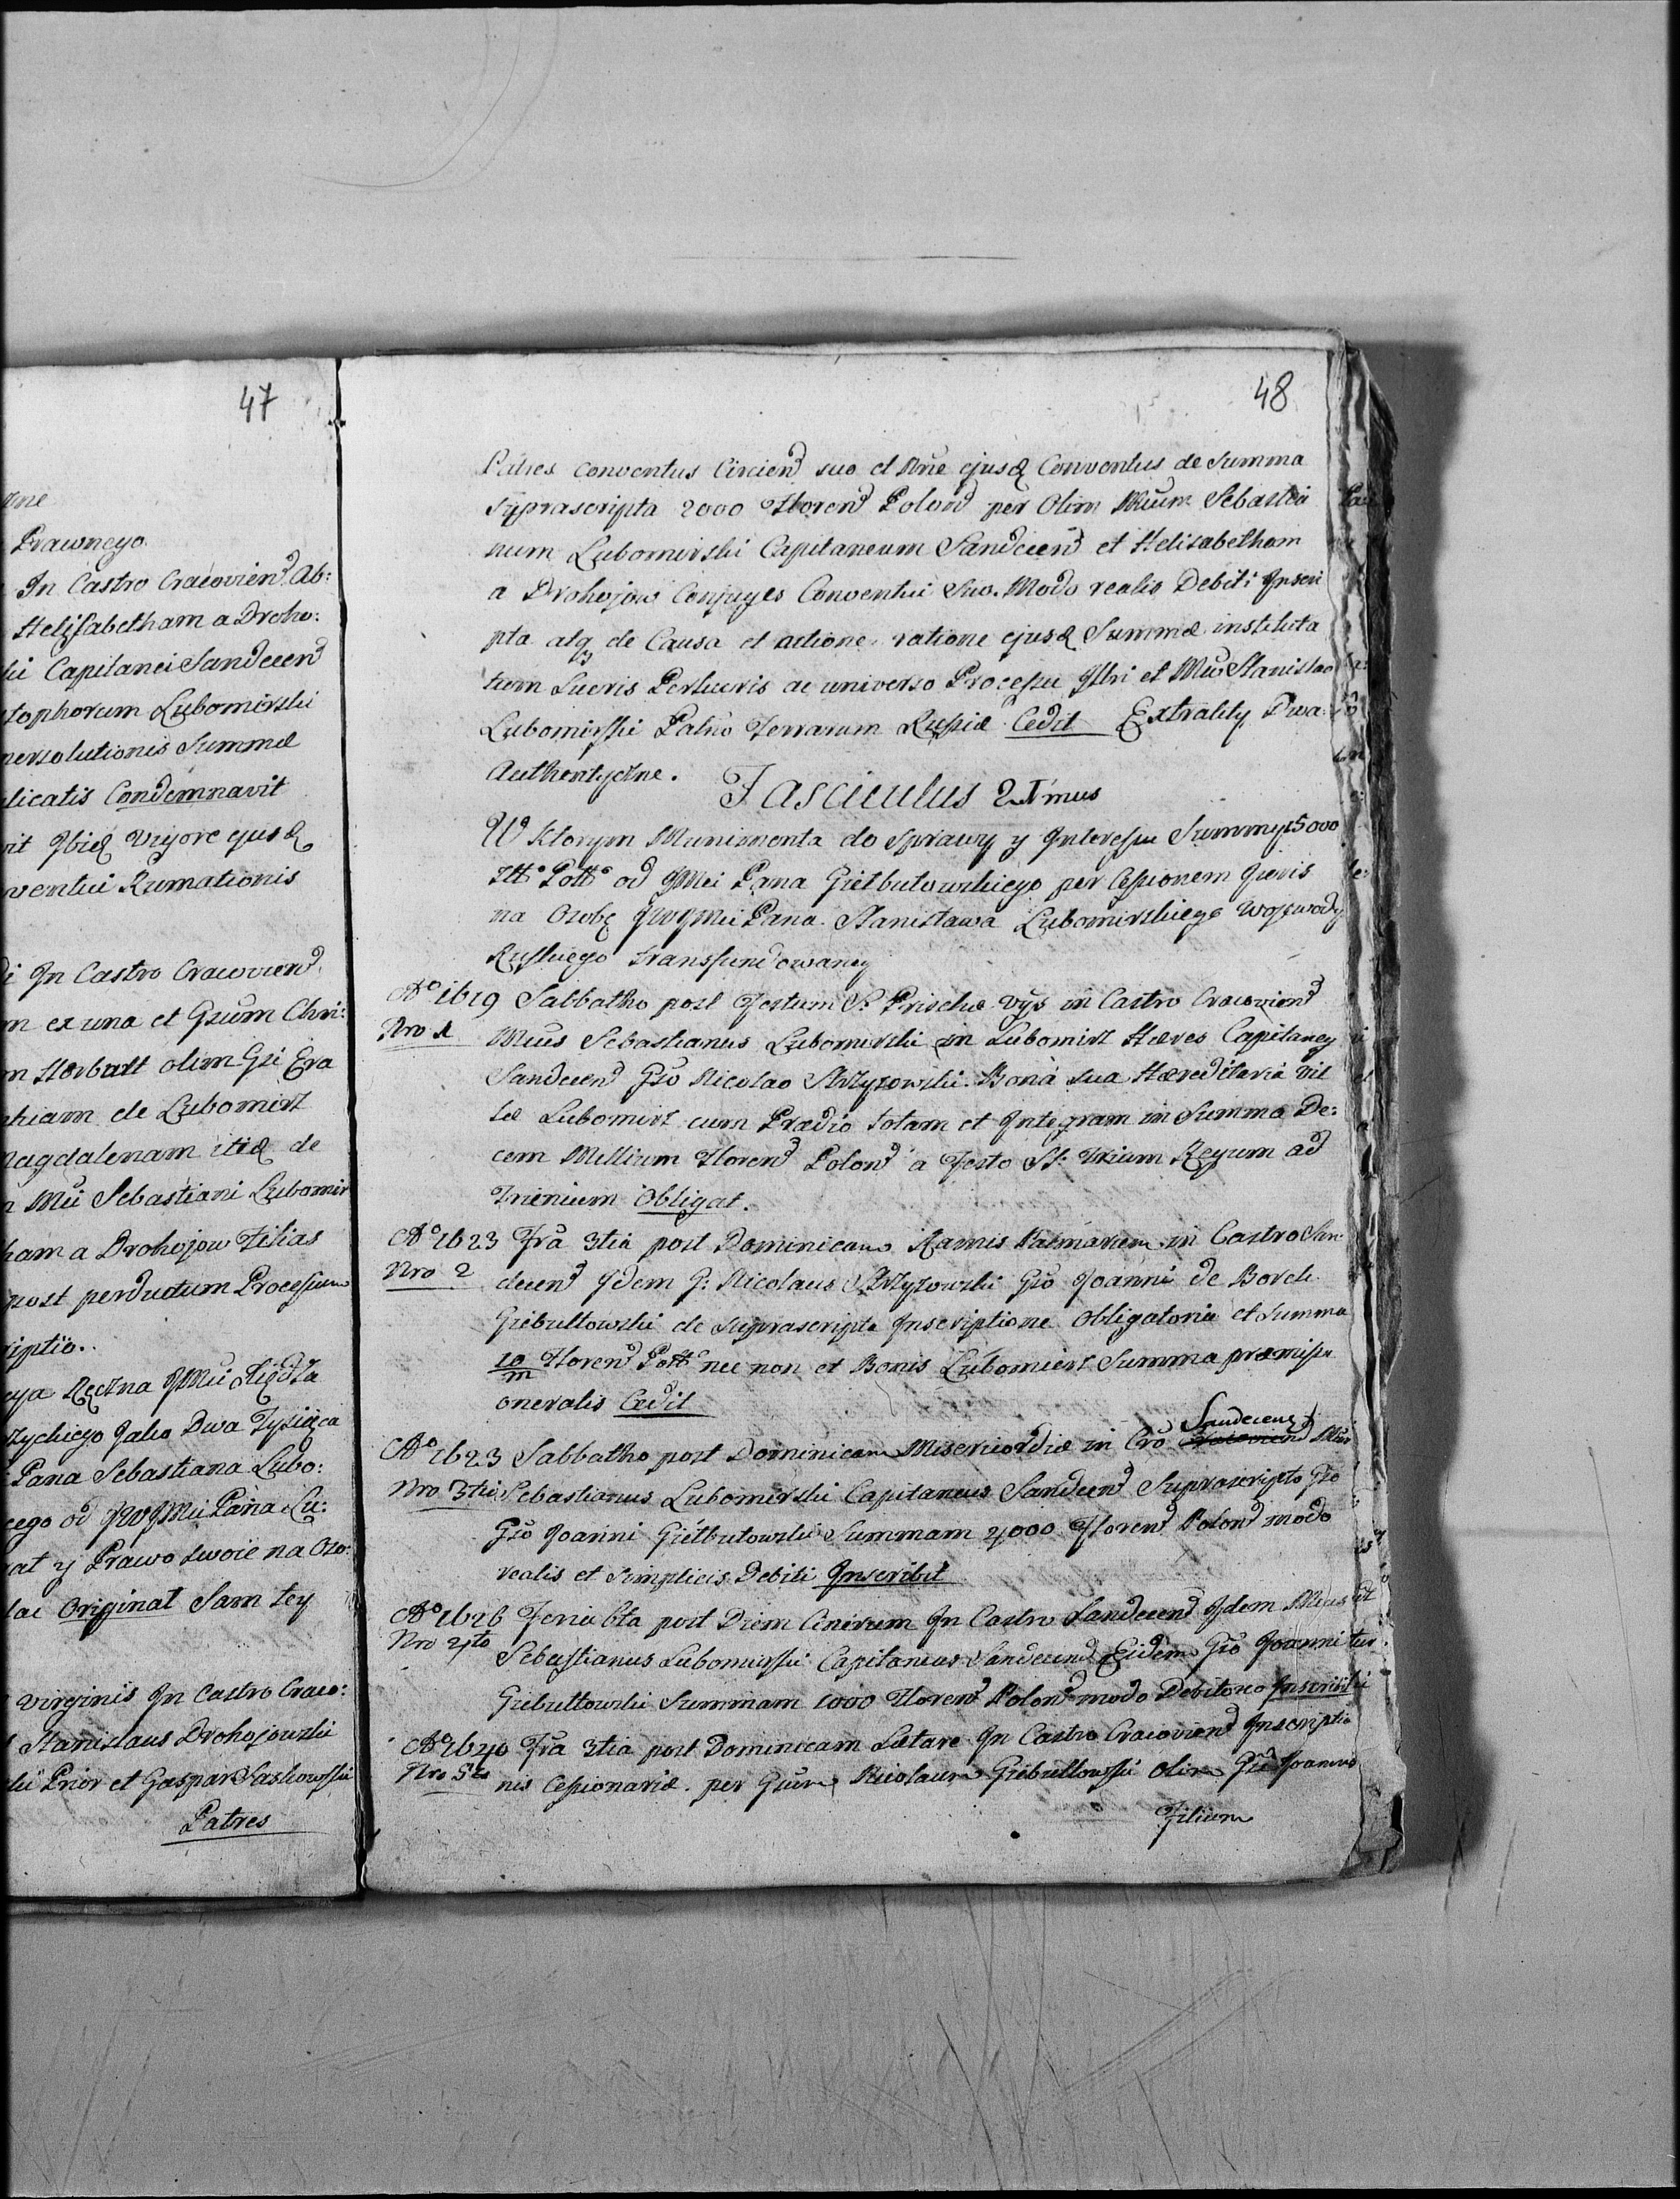 47
zne
Prawnego
In Castro Cracovien Ab:
Helisabetham a Droho:
ki Capitanei Sandecen
tophorum Lubomirski
persolutionis Summæ
plicatis Condemnavit
vit Ibid vigore ejusd
ventui Rumationis
di In Castro Cracovien
m ex una et Gsum Chri:
m Herburt olim Gsi Era
phiam de Lubomirz
Magdalenam itid de
m Mci Sebastiani Lubomir
ham a Drohojow Filias
post perductum Processum
riptio.
cya Ręczna JMci Xiędza
rzyckiego jako Dwa Tysiąca
Pana Sebastiana Lubo:
cego od JWJMci Pana Lu:
at y Prawo swoie na Oso:
Originał Sam tey
Virginis In Castro Craco:
Stanislaus Drohojowski
Prior et Gaspar Saskowski
Patres
48
Patres conventus Circien suo et Nne ejusd Conventus de Summa
Suprascripta 2000 Floren Polon per Olim Mcum Sebastia
num Lubomirski Capitaneum Sandecen et Helisabetham
a Drohojow Conjuges Conventui Suo Modo realis Debiti Inscri
pta atq de Causa et actione ratione ejusd Summæ instituta
tum Lucris Perlucris ac universo Processu Illri et Mco Stanislao
Lubomirski Palno Terrarum Russiæ Cedit Extrakty Dwa
Authentyczne.
Fasciculus 2dmus
W Ktorym Munimenta do Sprawy y Interessu Summy 15000
Złt Poll od JMci Pana Giełbutowskiego per Cessionem Iuris
na Osobę JWJMci Pana Stanisława Lubomirskiego Wojewody
Ruskiego transfundowaney
Ao 1619 Sabbatho post Festum S. Priscæ Vgs in Castro Cracovien
Nro 1 Mcus Sebastianus Lubomirski in Lubomirz Hæres Capitaney
Sandecen Gso Nicolao Strzyzowski Bona sua Hæreditaria vil
læ Lubomirz cum Prædio totam et Integram in Summa De:
cem Millium Floren Polon a Festo SS. Trium Regum ad
Trienium Obligat.
Ao 1623 Fra 3tia post Dominicam Ramis Palmarum in Castro San
Nro 2 decen Idem G: Nicolaus Strzyzowski Gso Joanni de Borch
Giebułtowski de Suprascripta Inscriptione Obligatoria et Summa
10/m Floren Poll nec non et Bonis Lubomierz Summa præmissa
oneratis Cedit
Ao 1623 Sabbatho post Dominicam Misericordiæ in Cro Sandecens Mcus
Nro 3tii Sebastianus Lubomirski Capitaneus Sandecen Suprascripto Gso
Gso Joanni Giełbutowski Summam 4000 Floren Polon modo
realis et Simplicis Debiti Inscribit
Ao 1626 Feria 6ta post Diem Cinerum In Castro Sandecen Idem Mcus
Nro 4to Sebastianus Lubomirski Capitaneus Sandecen Eidem Gso Joanni
Giebułtowski Summam 1000 Floren Polon modo Debitorio Inscribit
Ao 1640 Fra 3tia post Dominicam Lætare In Castro Cracovien Inscriptio
Nro 5to nis Cessionariæ per Gsum Nicolaum Giebułtowski olim Gsi Joannis
Filium